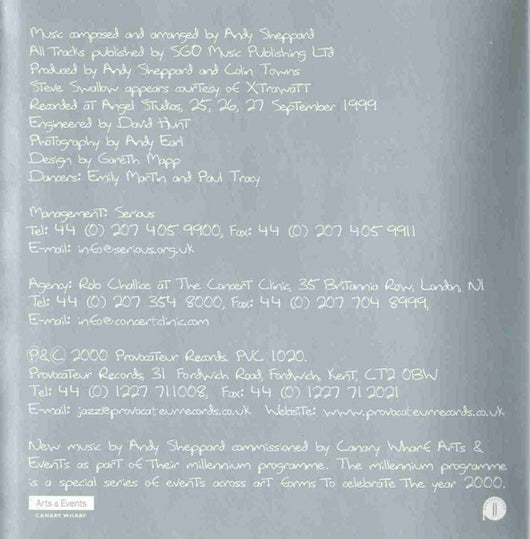 Music composed and arranged by Andy Sheppard
All Tracks published by SGO Music Publishing Ltd
Produced by Andy Sheppard and Colin Towns
Steve Swallow appears courtesy of XTrawatt
Recorded at Angel Studios, 25, 26, 27 September 1999
Engineered by David Hunt
Photography by Andy Earl
Design by Gareth Mapp
Dancers: Emily Martin and Paul Tracy
Management: Serious
Tel: 44 (0) 207 405 9900, Fax: 44 (0) 207 405 9911
E-mail: info@serious.org.uk
Agency: Rob Challice at The Concert Clinic, 35 Britannia Row, London, N1
Tel: 44 (0) 207 354 8000, Fax: 44 (0) 207 704 8999,
E-mail: info@concertclinic.com
Ⓟ&Ⓒ 2000 Provocateur Records. PVC 1020.
Provocateur Records, 31 Fordwich Road, Fordwich, Kent, CT2 0BW
Tel: 44 (0) 1227 711008, Fax: 44 (0) 1227 71 2021
E-mail: jazz@provocateurrecords.co.uk Website: www.provocateurrecords.co.uk
New music by Andy Sheppard commissioned by Canary Wharf Arts &
Events as part of their millennium programme. The millennium programme
is a special series of events across art forms to celebrate the year 2000.
Arts & Events
CANARY WHARF